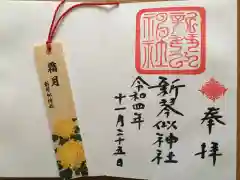 奉拝
新琴似神社
令和四年
十一月二十五日
霜月
新琴似神社